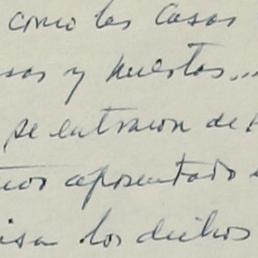 como las casas
sas y huertas...
se entraron de
aposentado
los dichos